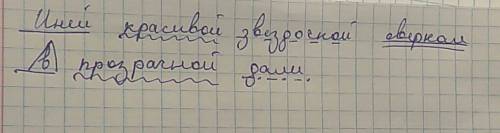 Иней красивой звездочкой сверкал
В прозрачной дали.